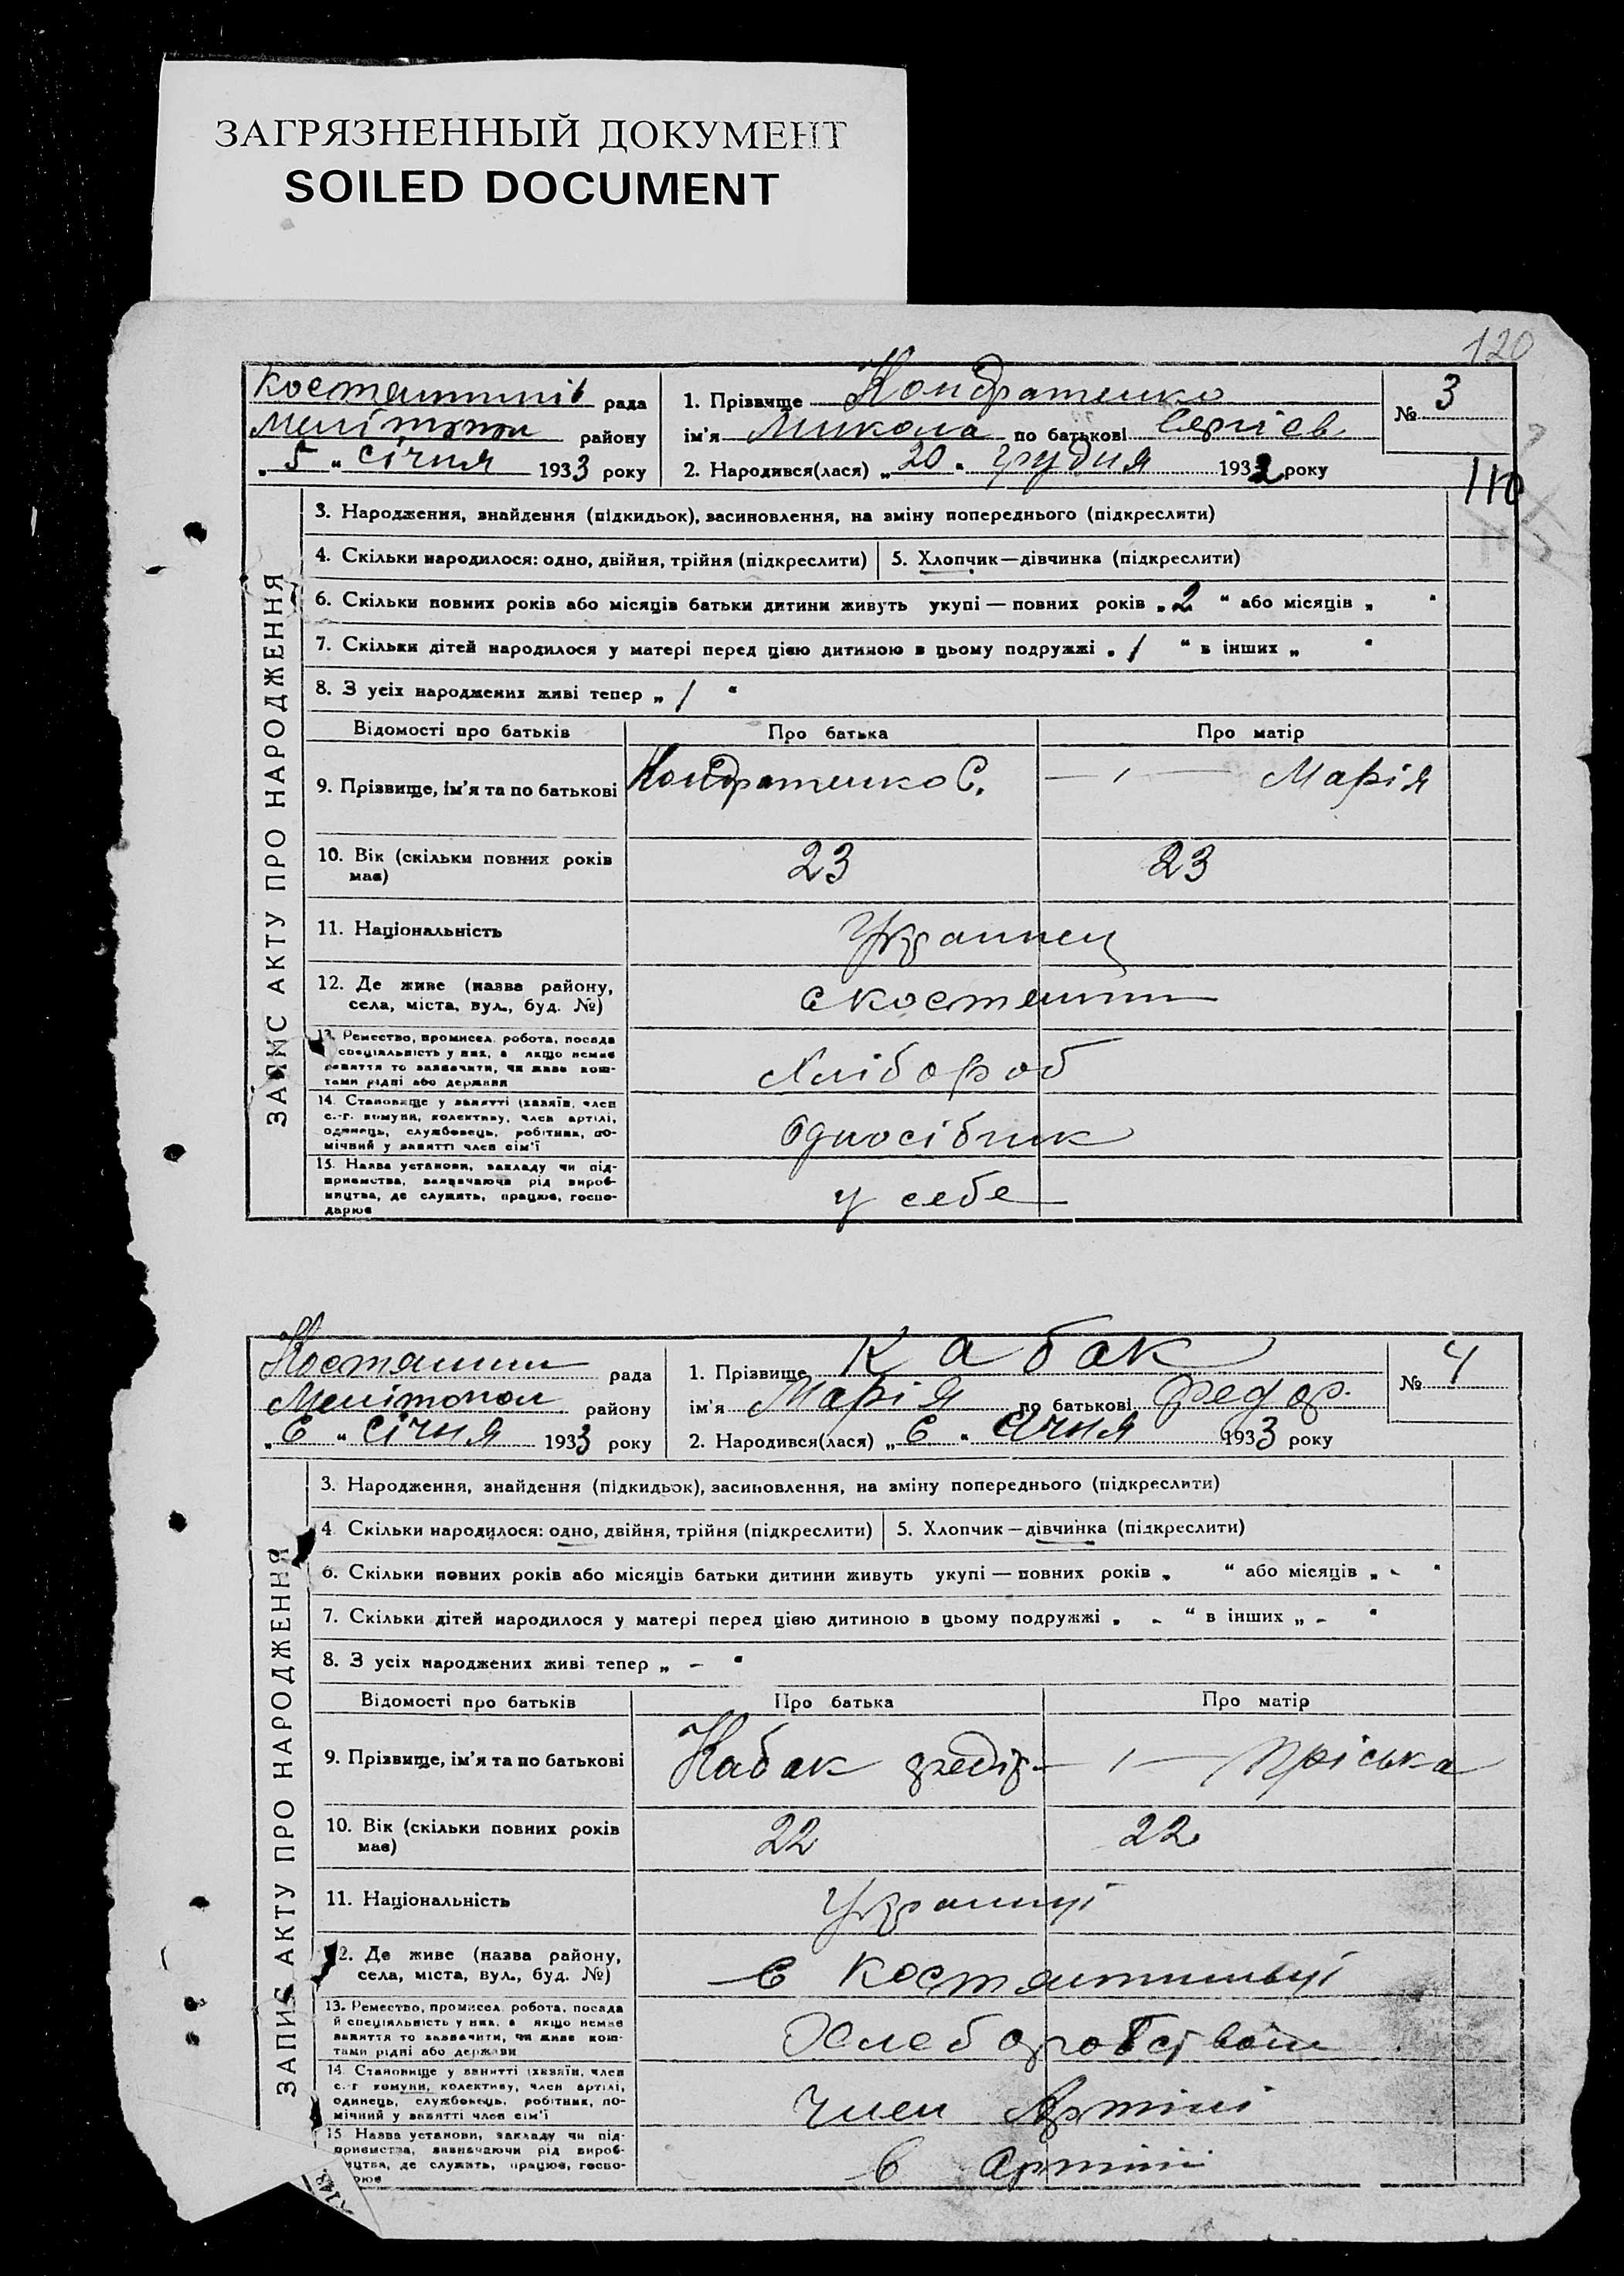 ЗАГРЯЗНЕННЫЙ ДОКУМЕНТ
SOILED DOCUMENT
120
Костянтинів рада
Мелітопол району
„ 5 “ січня 1933 року
1. Прізвище Кондратенко
ім'я Микола по батькові Сергієв
2. Народився(лася) „ 20 “ грудня 1932 року
№ 3
110
ЗАПИС АКТУ ПРО НАРОДЖЕННЯ
3. Народження, знайдення (підкидьок), засиновлення, на зміну попереднього (підкреслити)
4. Скільки народилося: одно, двійня, трійня (підкреслити) 5. Хлопчик—дівчинка (підкреслити)
6. Скільки повних років або місяців батьки дитини живуть укупі — повних років „ 2 “ або місяців „ “
7. Скільки дітей народилося у матері перед цією дитиною в цьому подружжі „ 1 “ в інших „ “
8. З усіх народжених живі тепер „ 1 “
Відомості про батьків Про батька Про матір
9. Прізвище, ім'я та по батькові Кондратенко С. — 〃 — Марія
10. Вік (скільки повних років має) 23 23
11. Національність Украинец
12. Де живе (назва району, села, міста, вул., буд. №) с Костянтин
13. Ремество, промисел, робота, посада
й спеціяльність у них, а якщо немає
заняття то зазначити, чи живе кош-
тами рідні або держави
Хлібороб
14. Становище у занятті (хазяїн, член
с.-г. комуни, колективу, член артілі,
одинець, службовець, робітник, по-
мічний у занятті член сім'ї
Односібник
15. Назва установи, закладу чи під-
приємства, зазначаючи рід вироб-
ництва, де служить, працює, госпо-
дарює
у себе
Костянтин рада
Мелітопол району
„ 6 “ січня 1933 року
1. Прізвище Кабак
ім'я Марія по батькові Федор.
2. Народився(лася) „ 6 “ січня 1933 року
№ 4
ЗАПИС АКТУ ПРО НАРОДЖЕННЯ
3. Народження, знайдення (підкидьок), засиновлення, на зміну попереднього (підкреслити)
4. Скільки народилося: одно, двійня, трійня (підкреслити) 5. Хлопчик—дівчинка (підкреслити)
6. Скільки повних років або місяців батьки дитини живуть укупі — повних років „ “ або місяців „ - “
7. Скільки дітей народилося у матері перед цією дитиною в цьому подружжі „ - “ в інших „ - “
8. З усіх народжених живі тепер „ - “
Відомості про батьків Про батька Про матір
9. Прізвище, ім'я та по батькові Кабак Федір — 〃 — Пріська
10. Вік (скільки повних років має) 22 22
11. Національність Украинці
12. Де живе (назва району, села, міста, вул., буд. №) в Костянтинівці
13. Ремество, промисел, робота, посада
й спеціяльність у них, а якщо немає
заняття то зазначити, чи живе кош-
тами рідні або держави
14. Становище у занятті (хазяїн, член
с.-г. комуни, колективу, член артілі,
одинець, службовець, робітник, по-
мічний у занятті член сім'ї
Член Артілі
15. Назва установи, закладу чи під-
приємства, зазначаючи рід вироб-
ництва, де служить, працює, госпо-
в Артілі